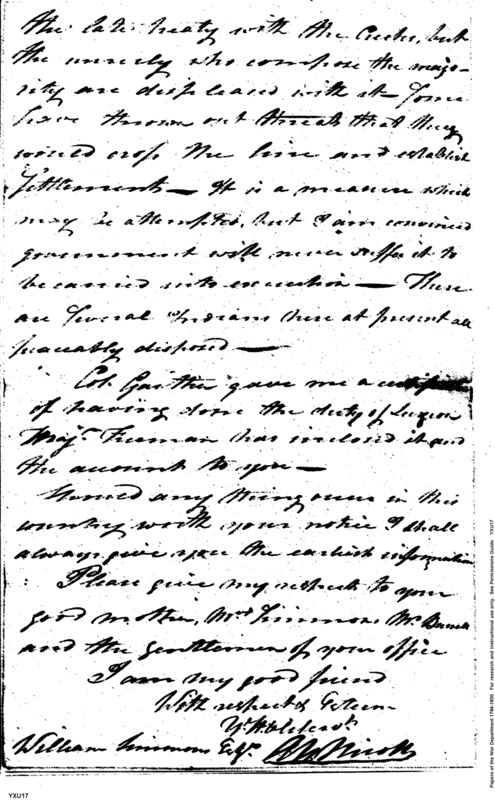 the late treaty with the Creeks, but
the unruly who compose the majo-
rity are displeased with it — Some
have thrown out threats that they
would cross the line and establish
Settlements — It is a measure which
may be attempted, but I am convinced
government will never suffer it to
be carried into execution — There
are several Indians here at present all
peaceably disposed —
Col. Gaither gave me a certificate
of having done the duty of Surgeon
Majr. Freeman has inclosed it and
the account to you —
Should any thing occur in this
country worth your notice I shall
always give you the earliest information
Please give my respects to your
good mother, Mrs Simmons, Mr
and the gentlemen of your office
I am my good friend
With respect & Esteem
William Simmons Esqr.
YXU17
Papers of the War Department 1784-1800. For research and instructional use only. See Permissions Guide. YXU17